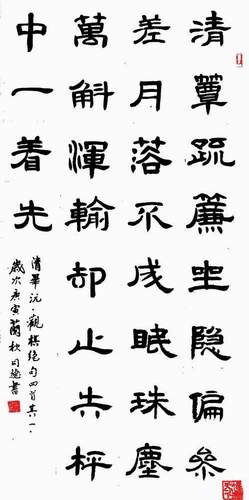 清簟疏簾坐隐偏參
差月落不成眠珠塵
萬斛渾輸却止枰
中一着先
清畢沅·觀棋绝句四首其一·
歲次庚寅蘭秋書